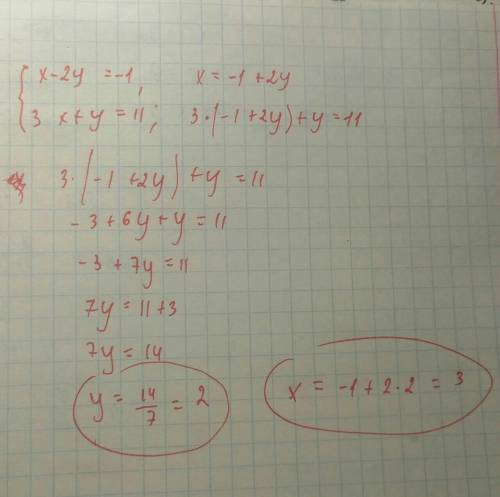 x-2y = -1, x = -1 + 2y
3 x+y = 11; 3·(-1 +2y)+y = 11
3·(-1 +2y) +y = 11
-3+6y+y = 11
-3+7y = 11
7y = 11+3
7y = 14
y = 14/7 = 2 x = -1+2·2 = 3